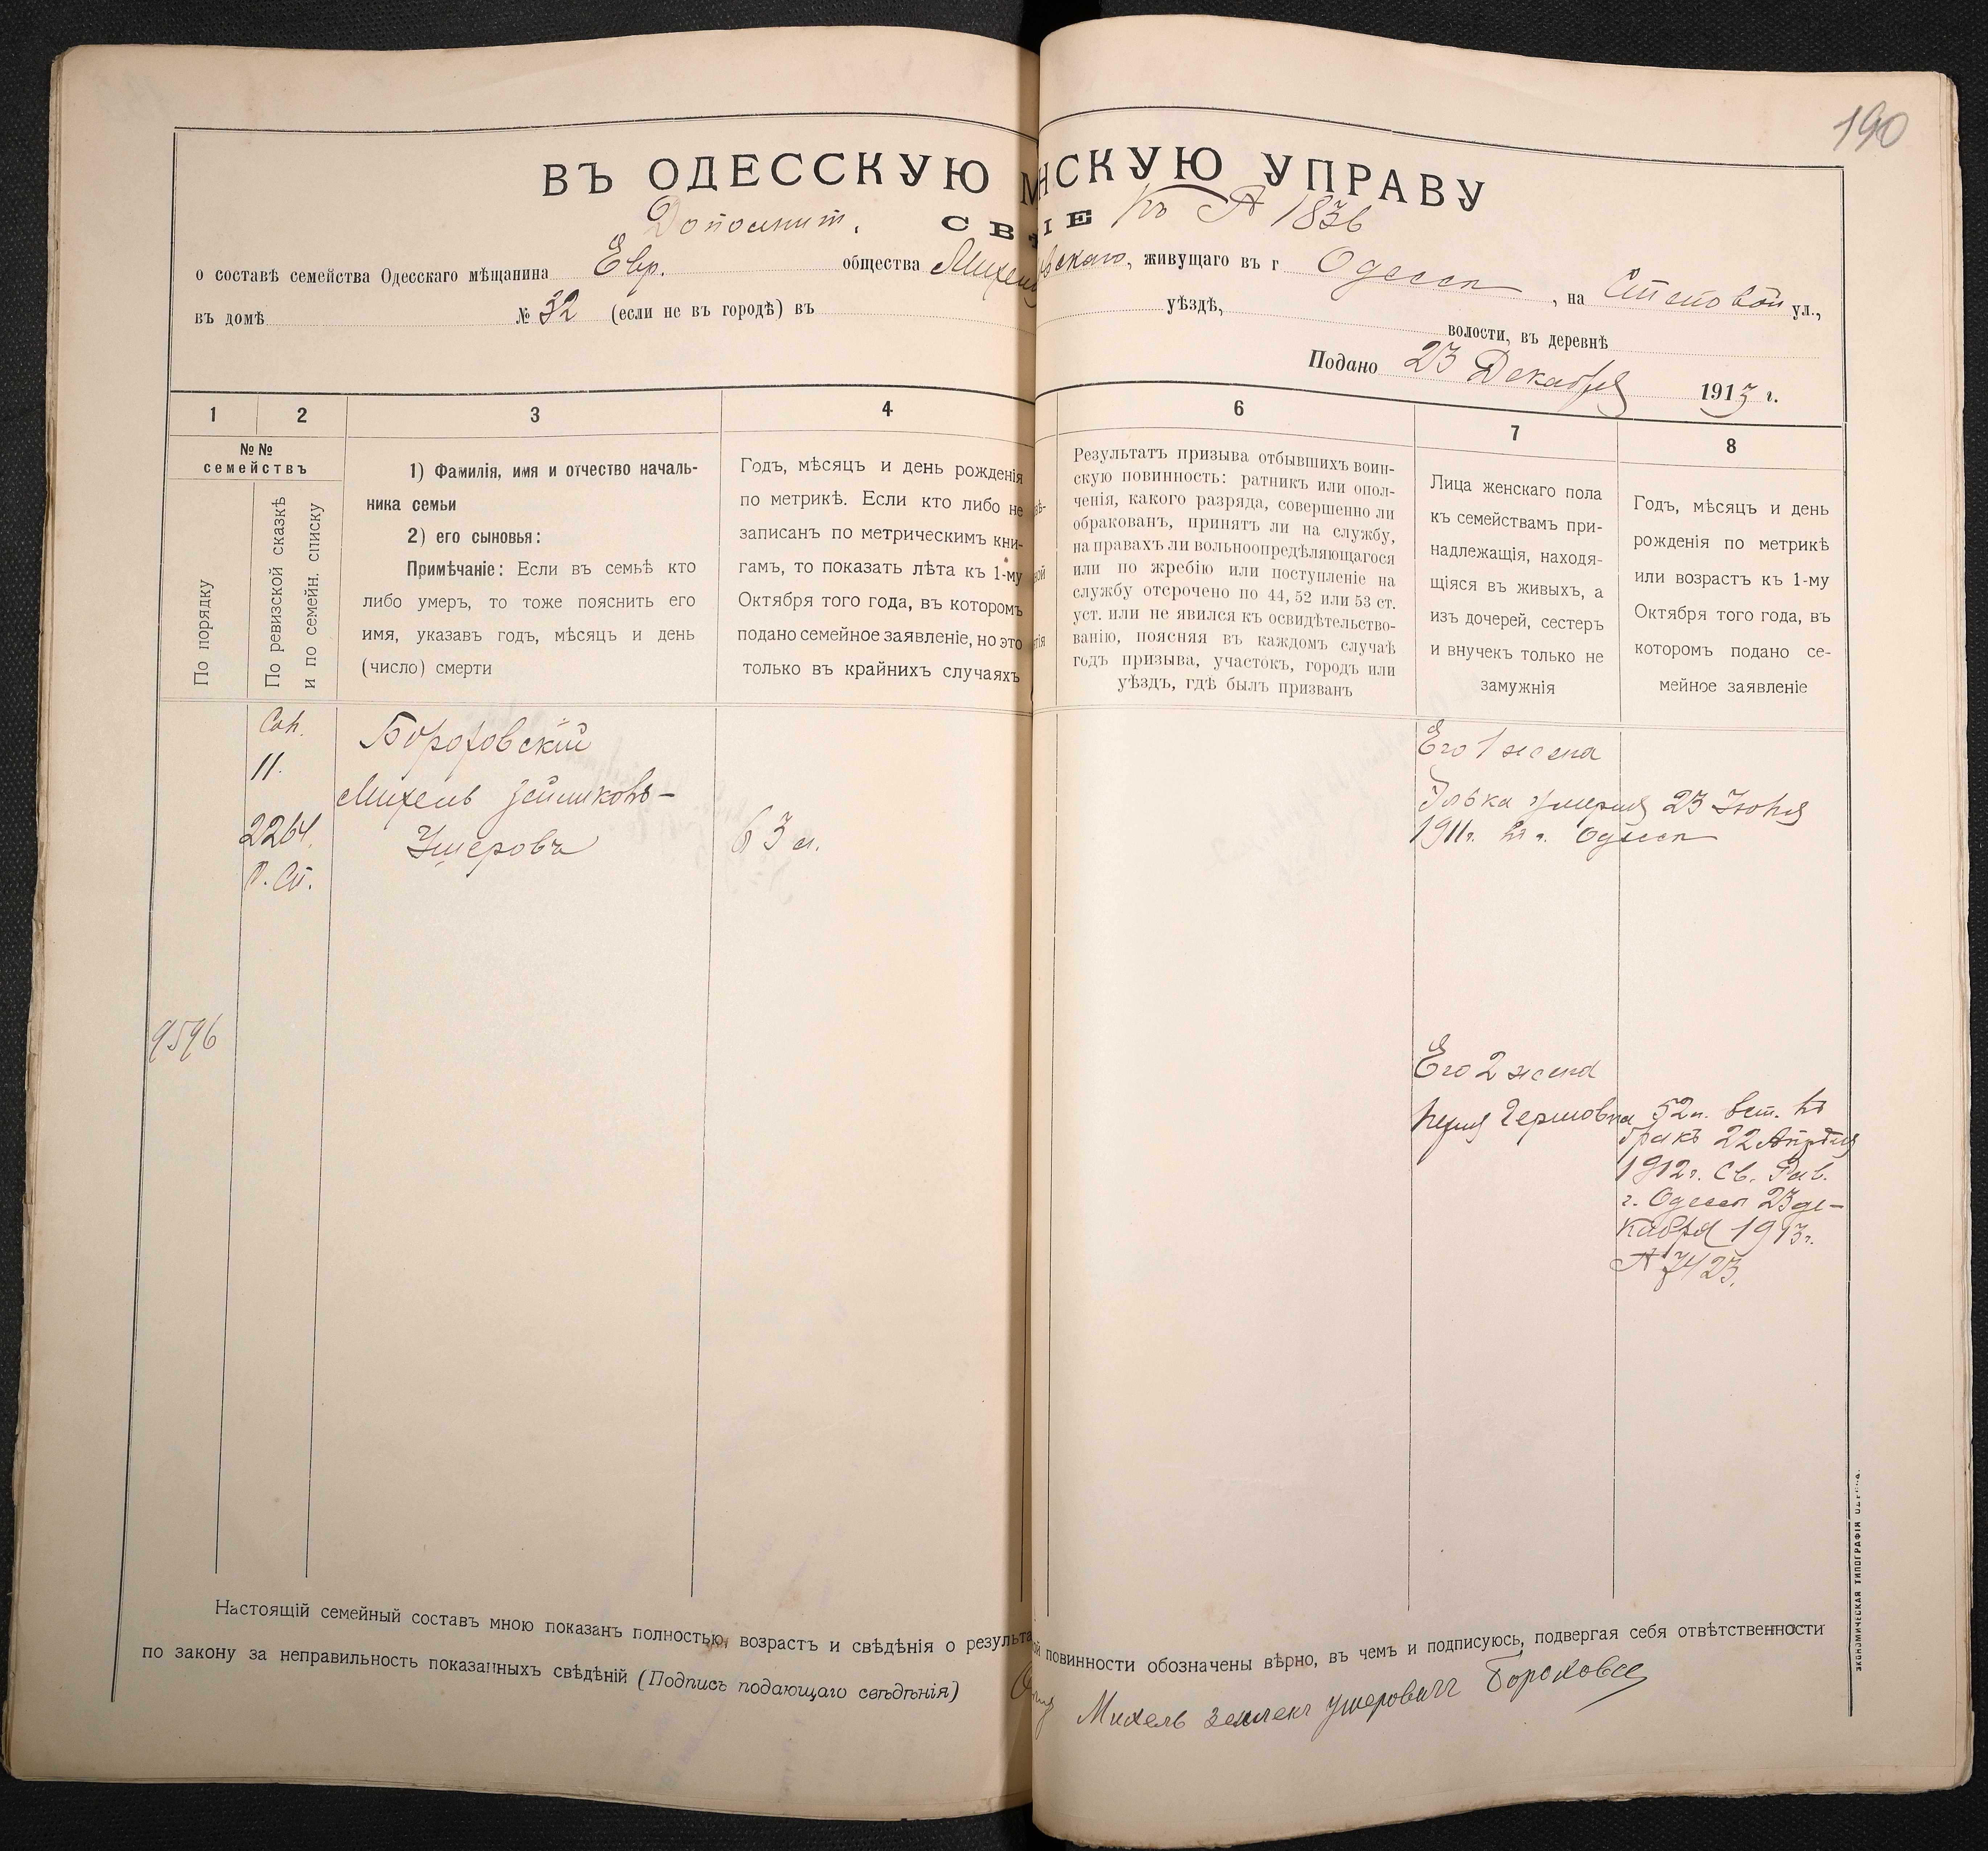 190
ВЪ ОДЕССКУЮ М НСКУЮ УПРАВУ
Дополнит. СВ ІЕ къ № 1836
о составѣ семейства Одесскаго мѣщанина Евр. общества скаго, живущаго въ г Одессѣ, на Степовой ул.,
въ домѣ № 32 (если не въ городѣ) въ уѣздѣ, волости, въ деревнѣ
Подано 23 Декабря 1913 г.
1 2 3 4 6 7 8
№№
семействъ
По порядку
По ревизской сказкѣ
и по семейн. списку
1) Фамилія, имя и отчество началь-
ника семьи
2) его сыновья:
Примѣчаніе: Если въ семьѣ кто
либо умеръ, то тоже пояснить его
имя, указавъ годъ, мѣсяцъ и день
(число) смерти
Годъ, мѣсяцъ и день рожденія
по метрикѣ. Если кто либо не
записанъ по метрическимъ кни-
гамъ, то показать лѣта къ 1-му
Октября того года, въ которомъ
подано семейное заявленіе, но это
только въ крайнихъ случаяхъ
Результатъ призыва отбывшихъ воин-
скую повинность: ратникъ или опол-
ченія, какого разряда, совершенно ли
обракованъ, принятъ ли на службу,
на правахъ ли вольноопредѣляющагося
или по жребію или поступленіе на
службу отсрочено по 44, 52 или 53 ст.
уст. или не явился къ освидѣтельство-
ванію, поясняя въ каждомъ случаѣ
годъ призыва, участокъ, городъ или
уѣздъ, гдѣ былъ призванъ
Лица женскаго пола
къ семействамъ при-
надлежащія, находя-
щіяся въ живыхъ, а
изъ дочерей, сестеръ
и внучекъ только не
замужнія
Годъ, мѣсяцъ и день
рожденія по метрикѣ
или возрастъ къ 1-му
Октября того года, въ
которомъ подано се-
мейное заявленіе
11.
2264.
Бороховскій
Михель Зейликовъ-
Ушеровъ
63 л.
9596
Его 1 жена
Элька умерла 23 Іюня
1911г. въ г. Одессѣ
Его 2 жена
Гершовна 52 л. вст. въ
бракъ 22 Апрѣля
1912г. Св. Рав.
г. Одессы 23 де-
кабря 1913г.
№ 7423.
Настоящій семейный составъ мною показанъ полностью, возрастъ и свѣдѣнія о результа ой повинности обозначены вѣрно, въ чемъ и подписуюсь, подвергая себя отвѣтственности
по закону за неправильность показанныхъ свѣдѣній (Подпись подающаго свѣдѣнія)
Михель Ушеровичъ
ЭКОНОМИЧЕСКАЯ ТИПОГРАФІЯ